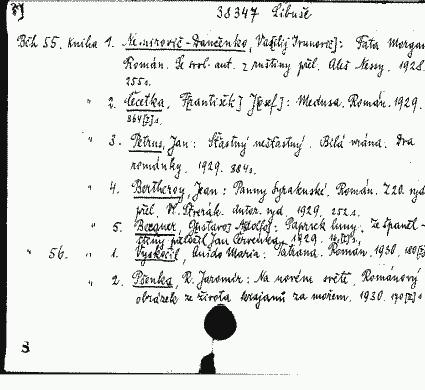 38347 Libuše
Běh 55. Kniha 1. Nemirovič-Dančenko, Vasilij Ivanovič]: Fata Morgan
Román. Se svol. aut. z ruštiny přel. Aleš Nessy. 1928.
255 s.
" 2. Čečetka, František] J[osef]: Medusa. Román. 1929.
364[I] s.
" 3. Petrus, Jan: Šťastný nešťastný. Bílá vrána. Dva
románky. 1929. 384 s.
" 4. Bertheroy, Jean: Panny Syrakuské. Román. Z 20. vyd.
přel. Autor. vyd. 1929. 252 s.
" 5. Becquer, Gustavo Adolfo: Paprsek luny. Ze španěl-
štiny přeložil Jan Červenka. 1929.
" 56. " 1. Vyskočil, Quido Maria: Tatrana. Román. 1930.
" 2. Pšenka, R. Jaromír: Na novém světě. Románový
obrázek ze života krajanů za mořem. 1930. 170[I] s